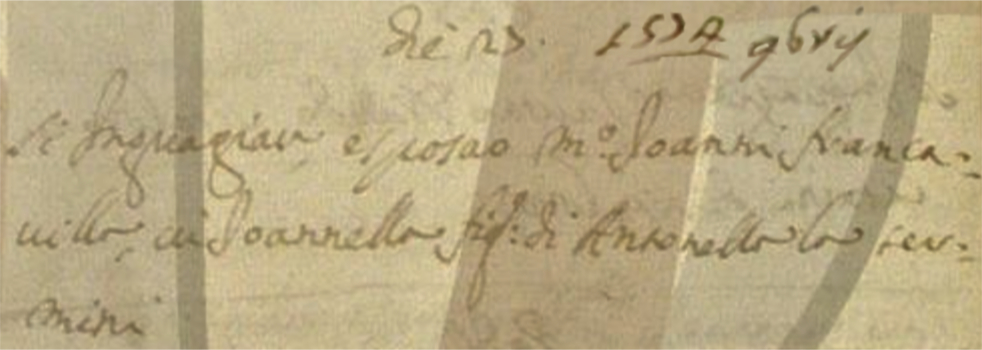 Die 23. 1571 9brij
Si Inguagiau, e sposao m.o Joanni franca-
uilla, cu Joannella fig: di Antonella la ter-
mini